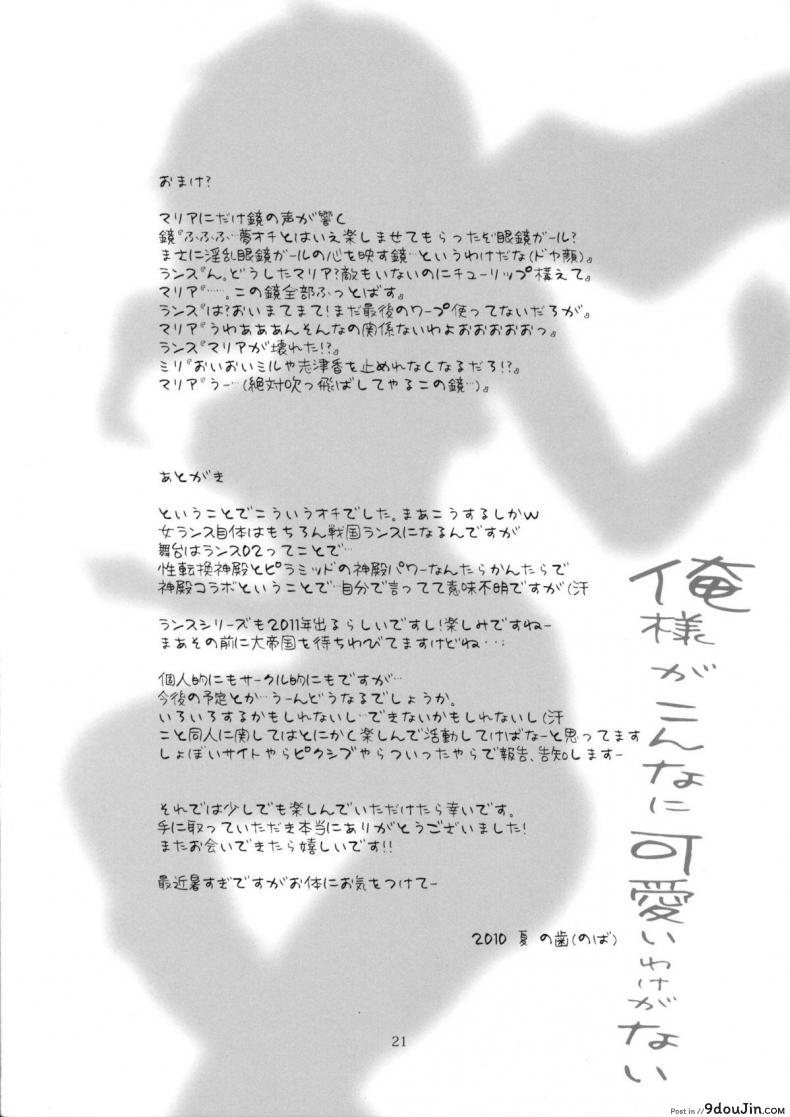 おまけ?
マリアにだけ鏡の声が響く
鏡『ふふふ…夢オチとはいえ楽しませてもらったぞ眼鏡ガール?
まさに淫乱眼鏡ガールの心を映す鏡…というわけだな(ドヤ顔)』
ランス『ん。どうしたマリア?敵もいないのにチューリップ構えて』
マリア『……。この鏡全部ふっとばす』
ランス『は?おいまてまて!まだ最後のワープ使ってないだろが』
マリア『うわあああんそんなの関係ないわよおおおおおっ』
ランス『マリアが壊れた!?』
ミリ『おいおいミルや志津香を止めれなくなるだろ!?』
マリア『うー…(絶対吹っ飛ばしてやるこの鏡…)』
あとがき
ということでこういうオチでした。まあこうするしかw
女ランス自体はもちろん戦国ランスになるんですが
舞台はランス02ってことで…
性転換神殿とピラミッドの神殿パワーなんたらかんたらで
神殿コラボということで…自分で言ってて意味不明ですが(汗
ランスシリーズも2011年出るらしいですし!楽しみですねー
まあその前に大帝国を待ちわびてますけどね・・・
個人的にもサークル的にもですが…
今後の予定とか…うーんどうなるでしょうか。
いろいろするかもしれないし…できないかもしれないし(汗
こと同人に関してはとにかく楽しんで活動してけばなーと思ってます
しょぼいサイトやらピクシブやらついったやらで報告、告知しますー
それでは少しでも楽しんでいただけたら幸いです。
手に取っていただき本当にありがとうございました!
またお会いできたら嬉しいです!!
最近暑すぎですがお体にお気をつけてー
2010 夏 の歯(のば)
俺様がこんなに可愛いわけがない
21
Post in // 9douJin.COM